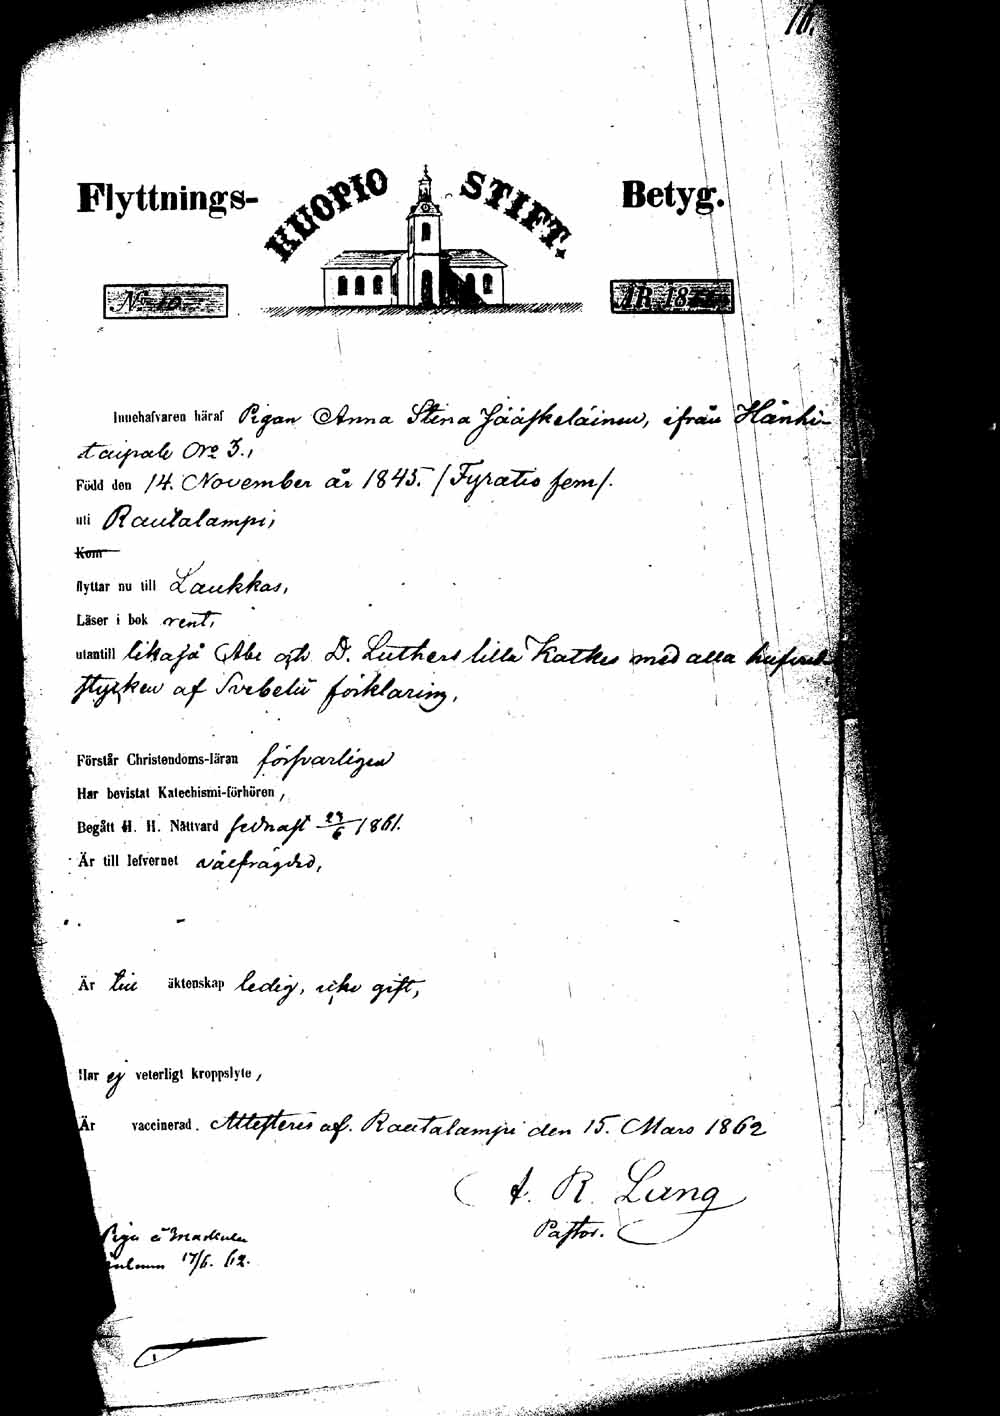 16.
Flyttnings- KUOPIO STIFT. Betyg.
No 10. ÅR 1862
Innehafvaren häraf Pigan Anna Stina Jääskeläinen, ifrån Hänki-
taipale No 3.,
Född den 14. November år 1845. / Fyratio fem /.
uti Rautalampi,
Kom
flyttar nu till Laukkas,
Läser i bok rent,
utantill likaså Abc och D. Luthers lilla Katkes med alla hufvud-
stycken af Svebelii förklaring,
Förstår Christendoms-läran försvarligen
Har bevistat Katechismi-förhören,
Begått H. H. Nattvard sednast 23/6 1861.
Är till lefvernet välfrägdad,
Är till äktenskap ledig, icke gift,
Har ej veterligt kroppslyte,
Är vaccinerad. Attesteras af. Rautalampi den 15. Mars 1862
A. R. Lung
Pastor.
Piga å
17/6. 62.